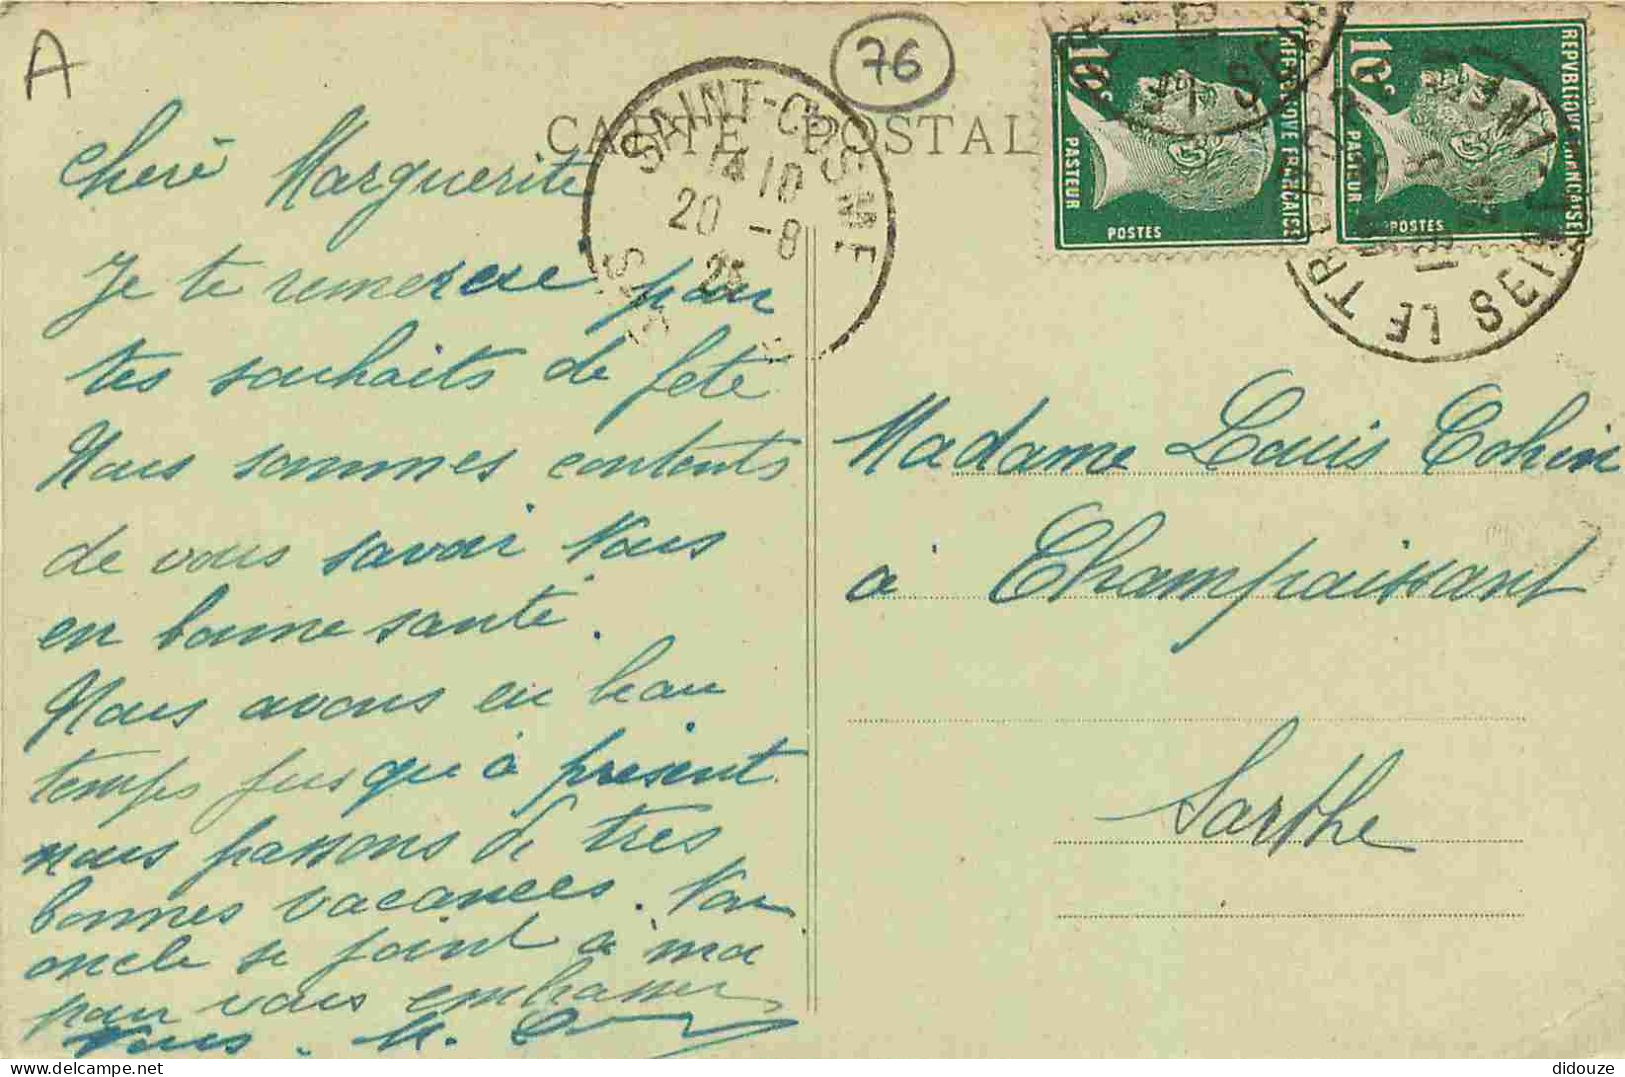 A
76
CARTE POSTALE
SAINT-COSME
14 10
20 -8
25
REPVBLIQVE FRANCAISE
10c
PASTEUR
POSTES
REPVBLIQVE FRANCAISE
10c
PASTEUR
POSTES
LE TRÉPORT
SEINE INFRE
cherè Marguerite
Je te remercie pour
tes souhaits de fete
Nous sommes contents
de vous savoir tous
en bonne santé.
Nous avons eu beau
temps jusqu'à présent
nous passons de tres
bonnes vacances. Ton
oncle se joint à moi
pour vous embrasser
tous. M.
Madame Louis Cohin
à Champaissant
Sarthe
didouze